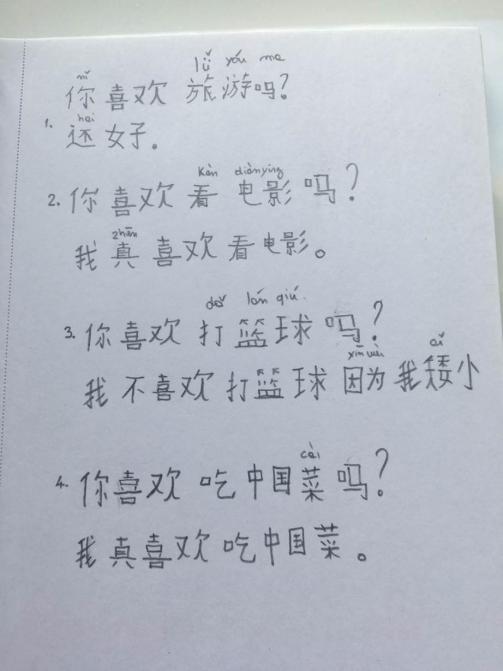 lǚ yóu ma
nǐ
你喜欢旅游吗?
hai
1. 还女子。
kàn diànyǐng
2. 你喜欢看电影吗?
zhēn
我真喜欢看电影。
dǎ lán qiú
3. 你喜欢打篮球吗?
yīn wèi ǎi
我不喜欢打篮球因为我矮小
cài
4. 你喜欢吃中国菜吗?
我真喜欢吃中国菜。